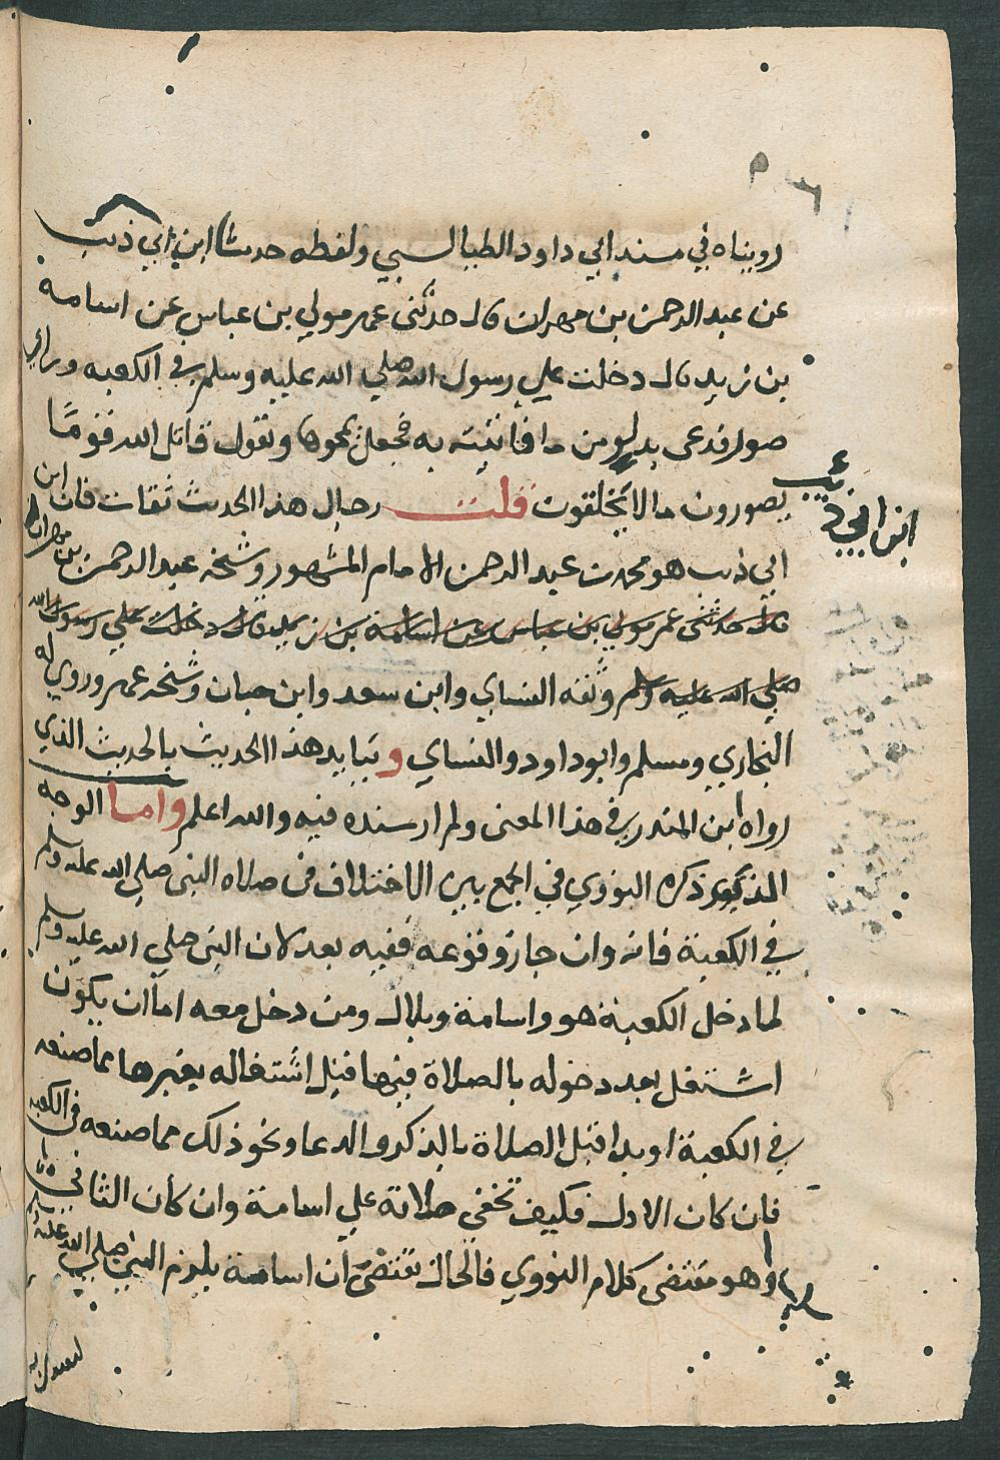 رويناه في مسند ابي داود الطيالسي ولفظه حدثنا ابن ابي ذئب
عن عبد الرحمن بن مهران قال حدثني عمير مولي بن عباس عن اسامه
بن زيد قال دخلت علي رسول الله صلي الله عليه وسلم في الكعبه وراي
صورا فدعي بدلو من ما فاتيته به فجعل يمحوها ويقول قاتل الله قوما
يصورون ما لا يخلقون قلت رجال هذا الحديث ثقات فان ابن
ابن ابي ذئب
ابي ذئب هو محمد بن عبد الرحمن الامام المشهور وشيخه عبد الرحمن بن مهران
قال حدثني عمير مولي بن عباس عن اسامة بن زيد قال دخلت علي رسول الله
صلي الله عليه وسلم وثقه النساي وابن سعد وابن حبان وشيخه عمير وروي له
البخاري ومسلم وابو داود والنساي و يتايد هذا الحديث بالحديث الذي
رواه ابن المنذر في هذا المعنى ولم ار سنده فيه والله اعلم واما الوجه
المذكور ذكره النووي في الجمع بين الاختلاف في صلاه النبي صلي الله عليه وسلم
في الكعبة فانه وان جاز وقوعه ففيه بعد لان النبي صلي الله عليه وسلم
لما دخل الكعبة هو واسامة وبلال ومن دخل معه اما ان يكون
اشتغل بعد دخوله بالصلاة فيها قبل اشتغاله بغيرها مما صنعه
في الكعبة او بدا قبل الصلاة بالذكر والدعا ونحو ذلك مما صنعه في الكعبه
فان كان الاول فكيف تخفي صلاته علي اسامة وان كان الثاني
وهو مقتضى كلام النووي فالحال يقتضى ان اسامة يلزم النبي صلي الله عليه